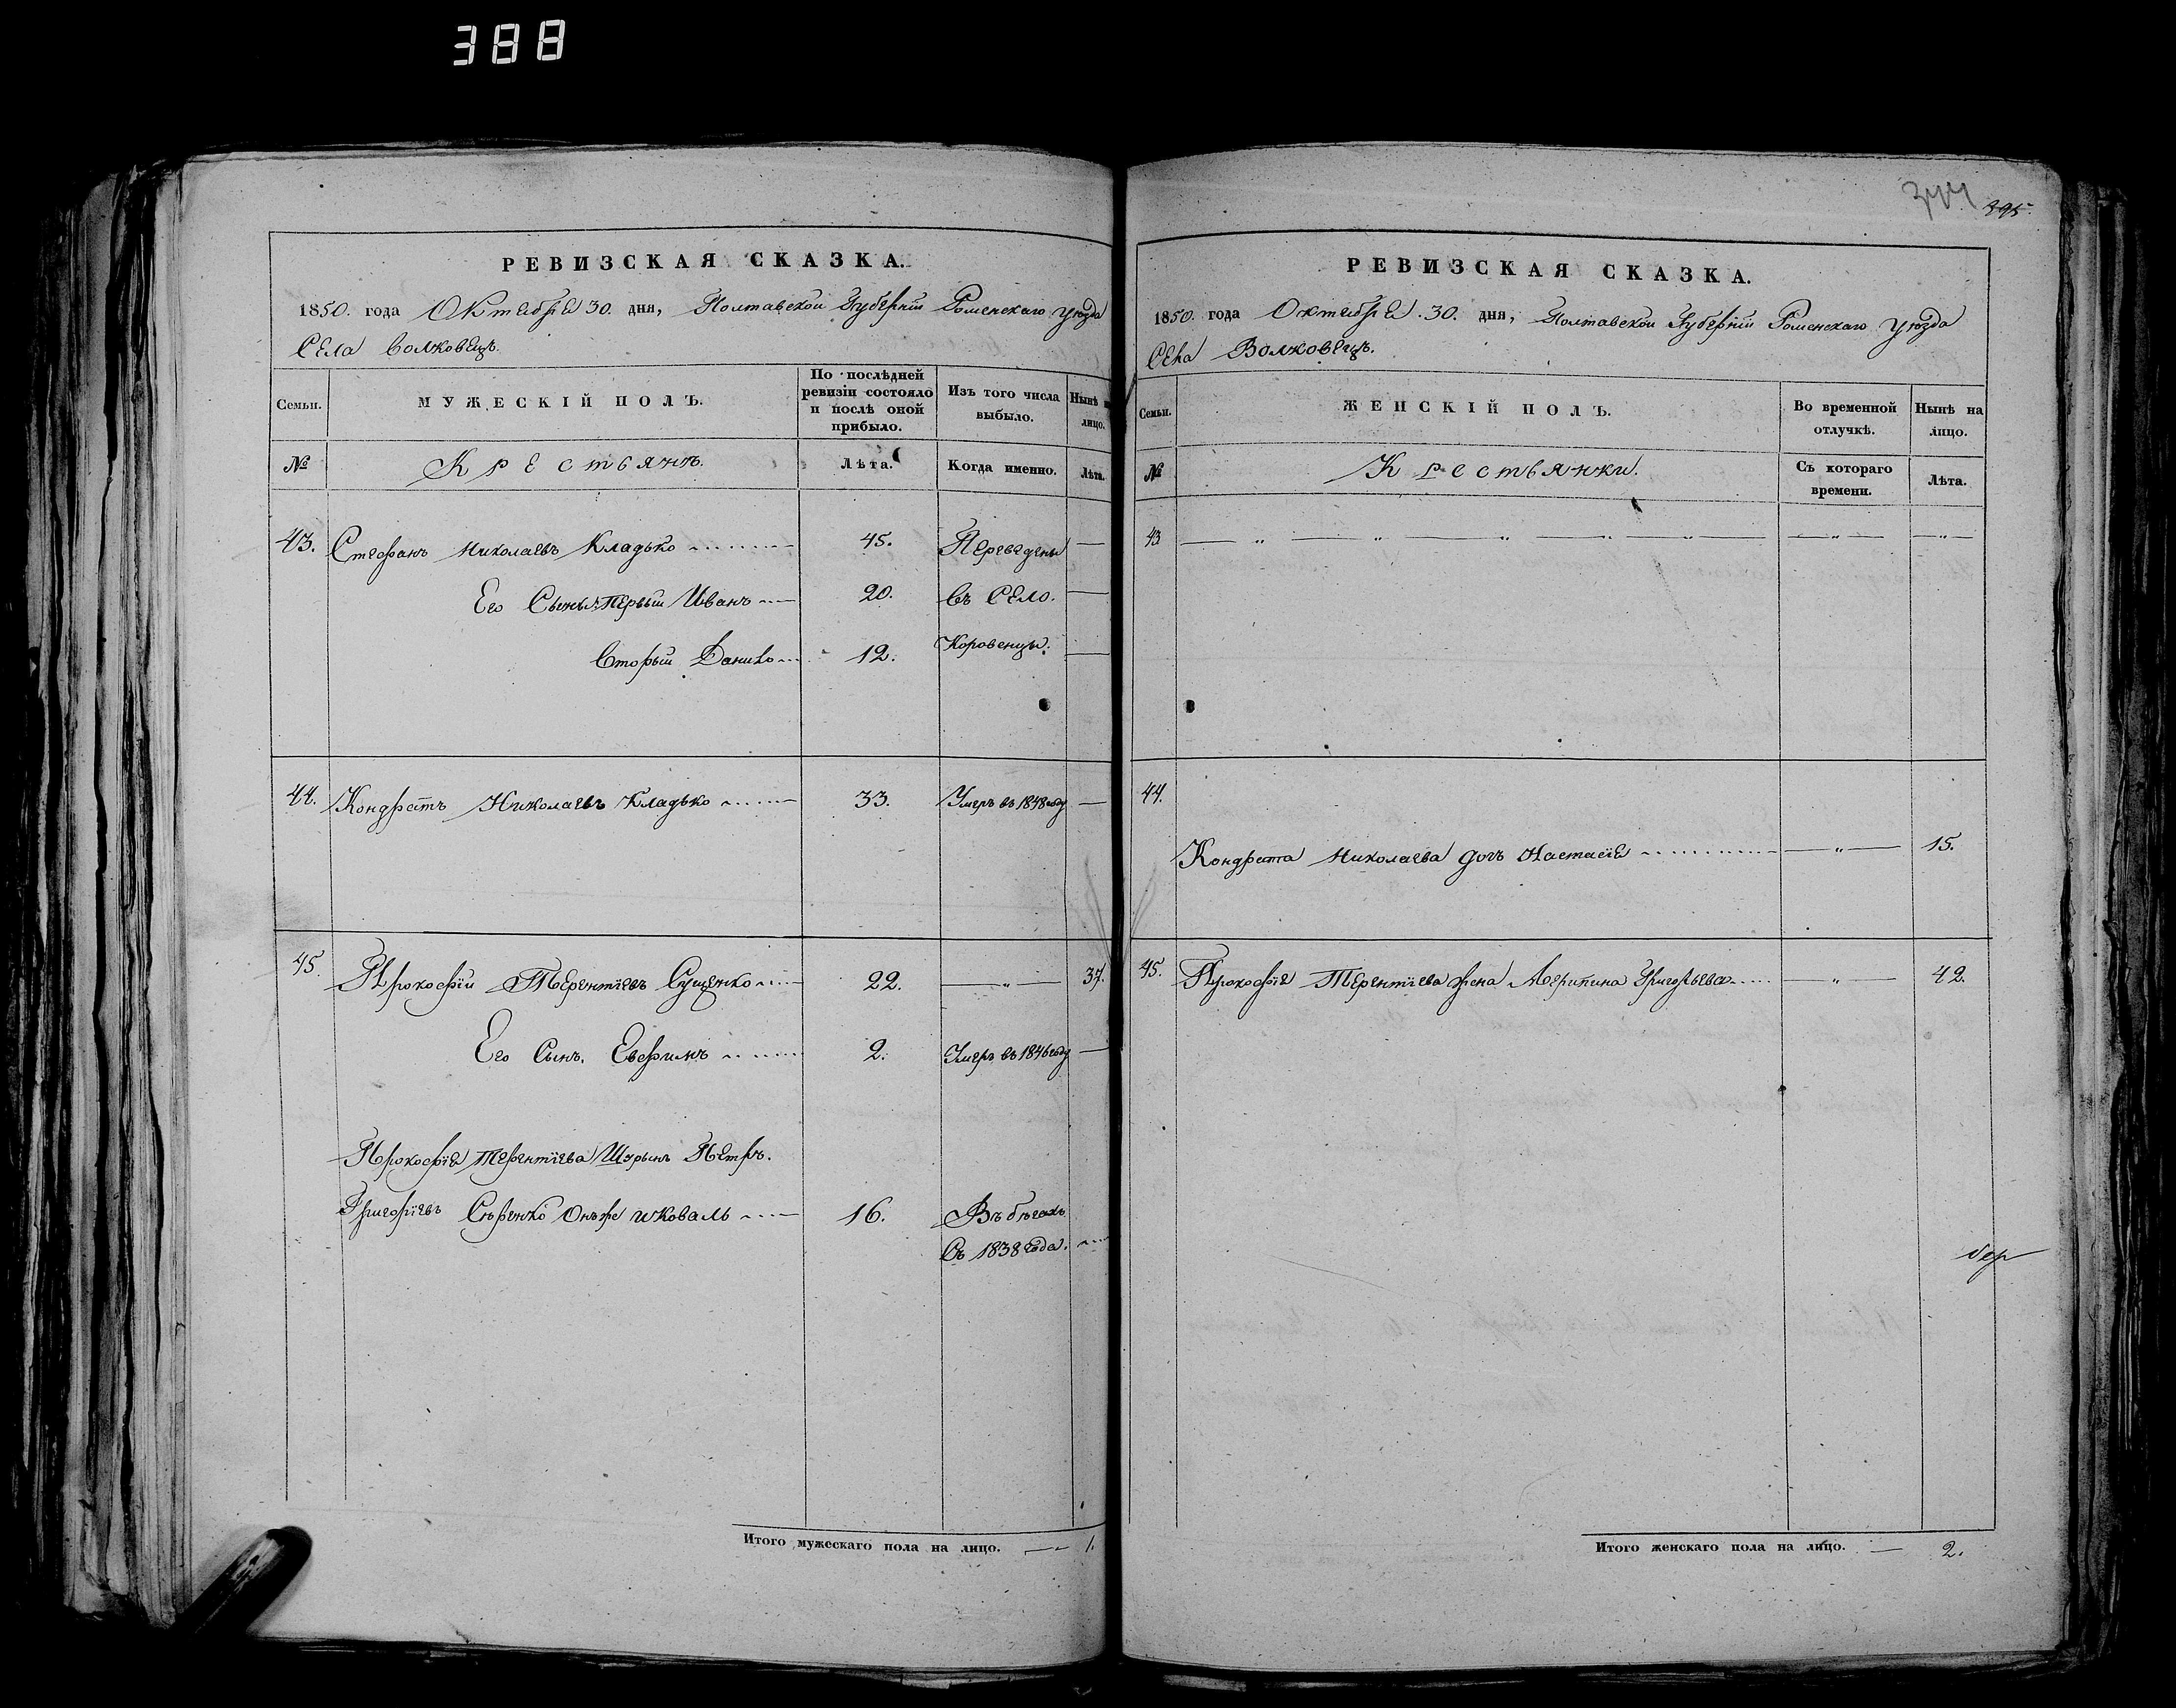 388
РЕВИЗСКАЯ СКАЗКА.
1850. года Октября 30. дня, Полтавской Губерніи Роменскаго уѣзда
Села Волковецъ.
Семьи.
МУЖЕСКІЙ ПОЛЪ.
По послѣдней ревизіи состояло и послѣ оной прибыло.
Изъ того числа выбыло.
Нынѣ на лицо.
№
Крестьянъ.
Лѣта.
Когда именно.
Лѣта.
43. Стефанъ Николаевъ Кладько 45. Переведены —
Его Сынья Первый Иванъ 20. въ Село. —
Вторый Данило 12. Коровенцы. —
44. Кондратъ Николаевъ Кладько 33. Умеръ въ 1848 году —
45. Прокофій Терентіевъ Сущенко 22. — „ — 37.
Его Сынъ. Евфимъ 2. Умеръ въ 1846 году —
Прокофія Терентіева Шурынъ Петръ.
Григоріевъ Сѣренко Онъже и Коваль 16. Въ бѣгахъ
Съ 1838 года.
Итого мужескаго пола на лицо. 1.
344 395.
РЕВИЗСКАЯ СКАЗКА.
1850 года Октября. 30. дня, Полтавской Губерніи Роменскаго уѣзда
Села Волковецъ.
Семьи.
ЖЕНСКІЙ ПОЛЪ.
Во временной отлучкѣ.
Нынѣ на лицо.
№
Крестьянки.
Съ котораго времени.
Лѣта.
43 — „ — „ — „ — „ — „ — — „ — — „ —
44.
Кондрата Николаева дочь Настасія — „ — 15.
45. Прокофія Терентіева жена Акрипина Григорьева — „ — 42.
Итого женскаго пола на лицо. — 2.